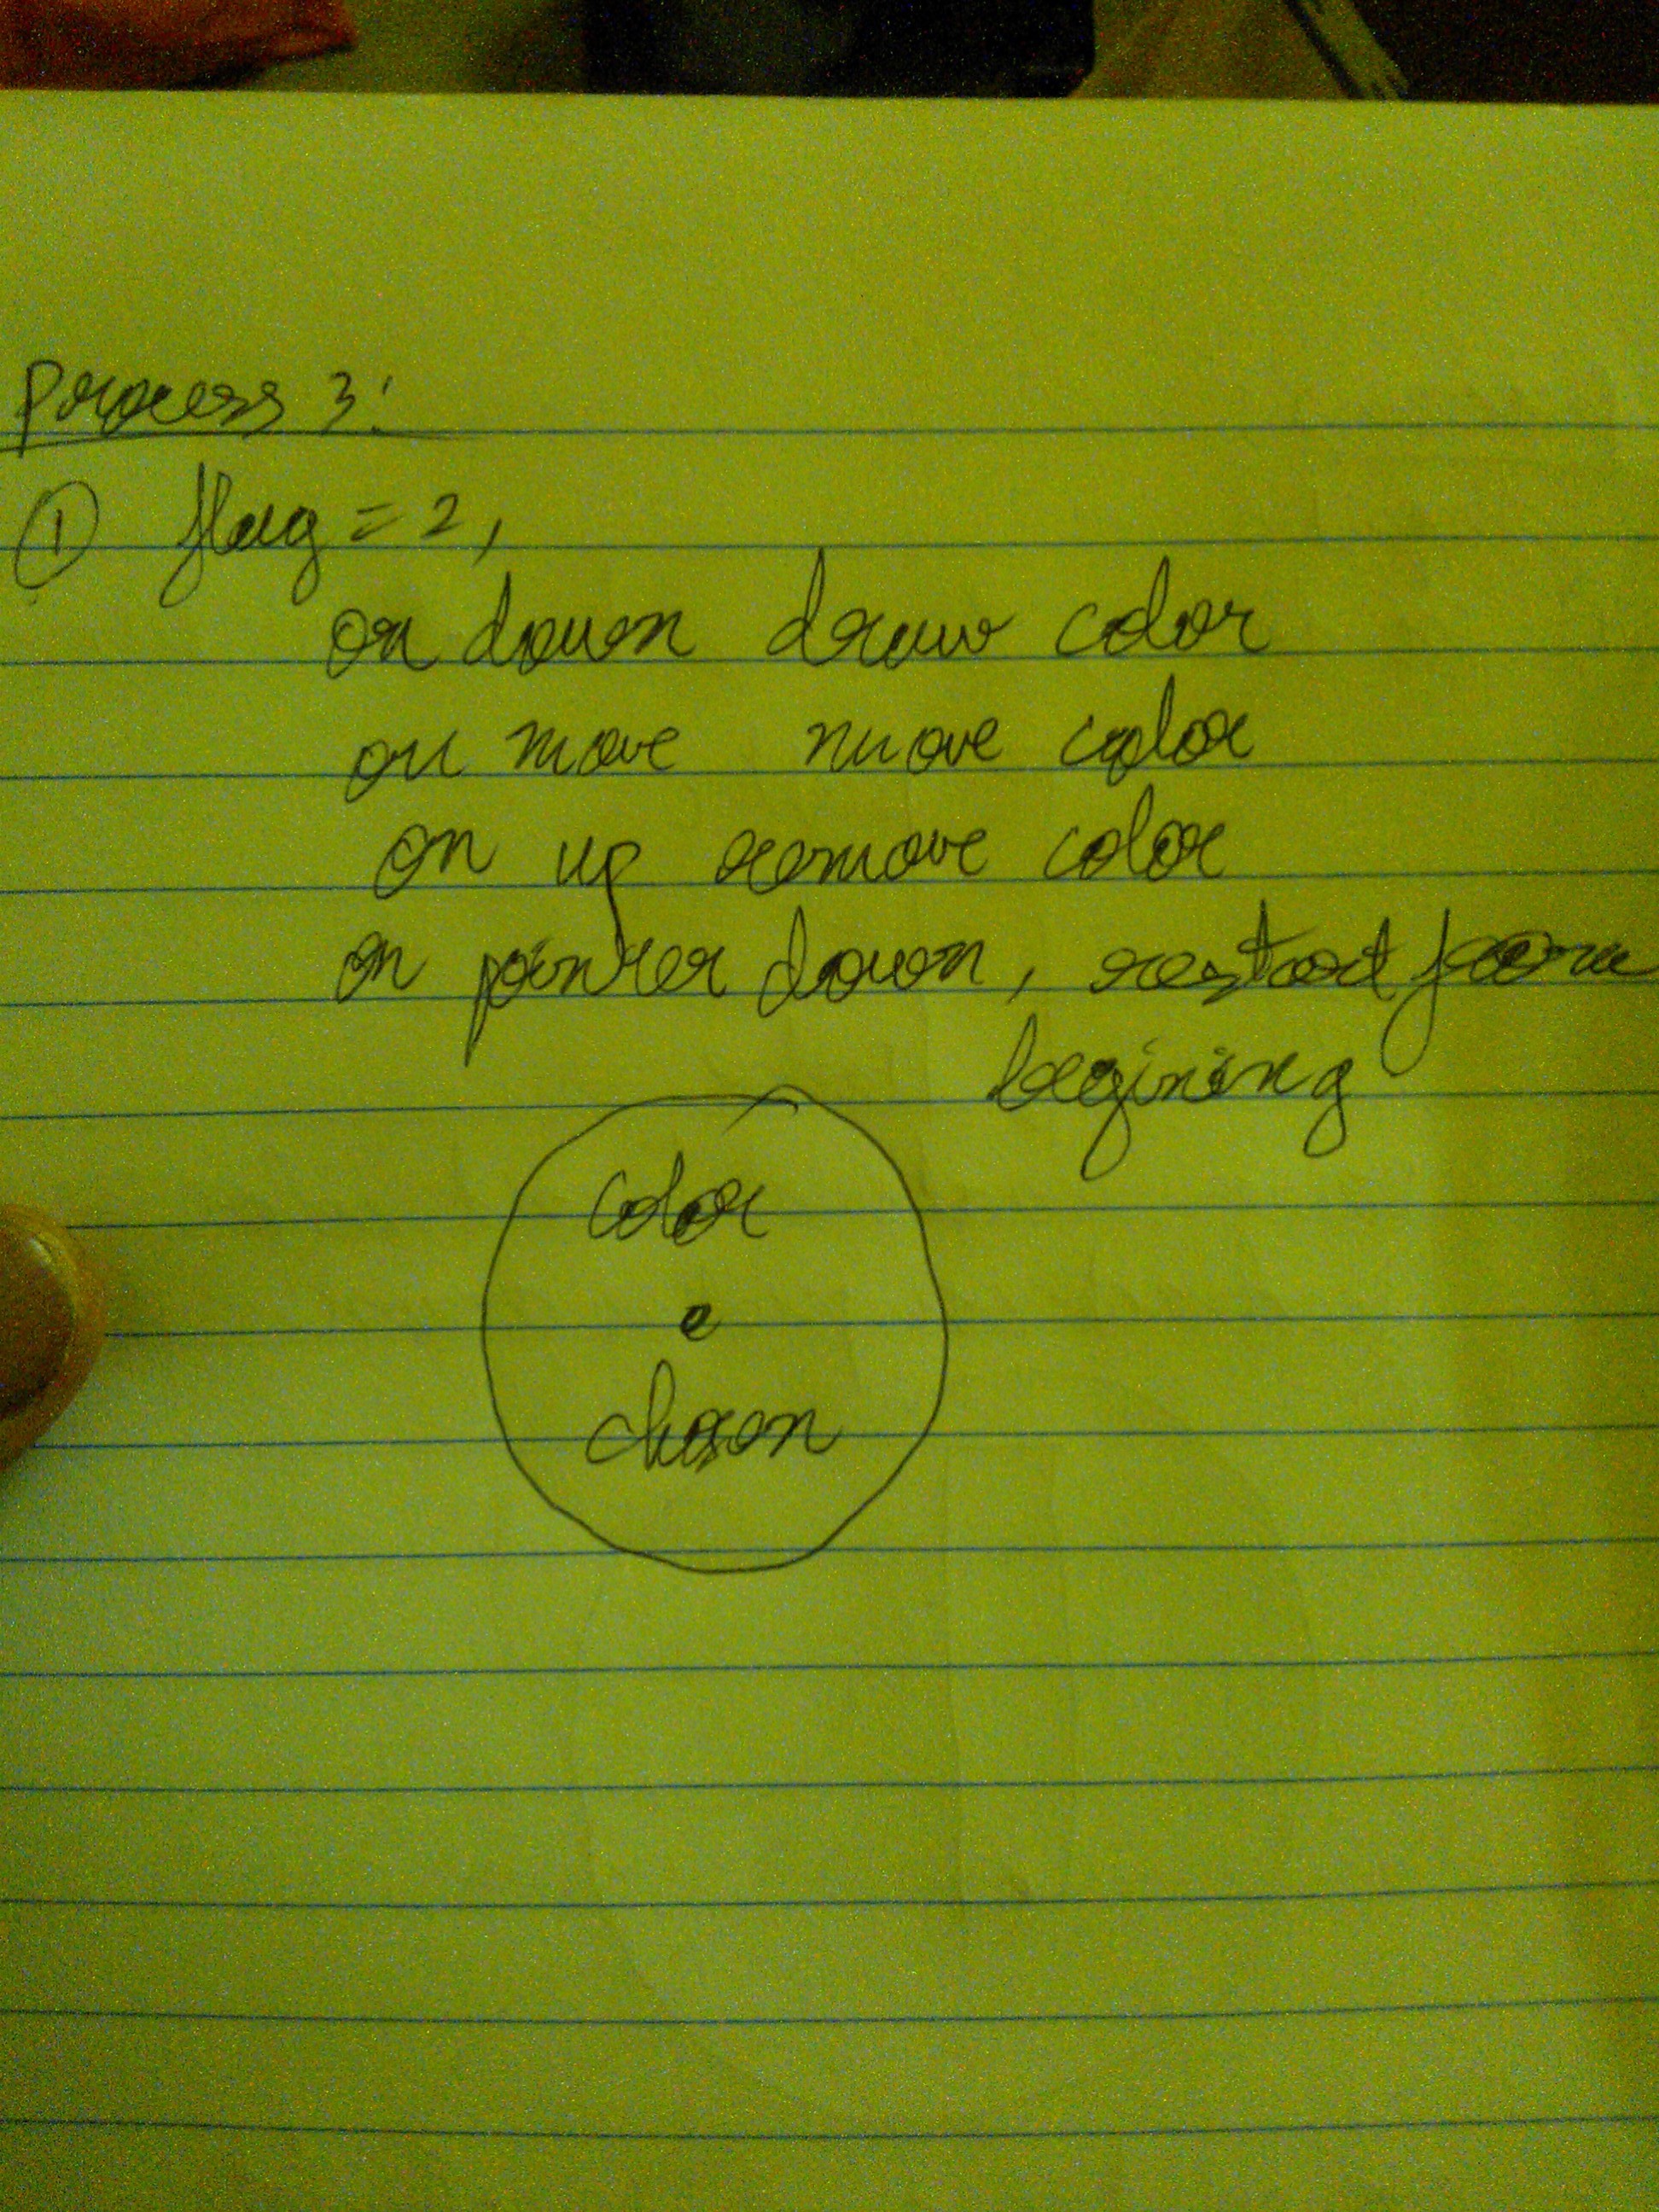 Process 3:
① flag = 2,
on down draw color
on move move color
on up remove color
on pointer down, restart from
begining
color
chosen